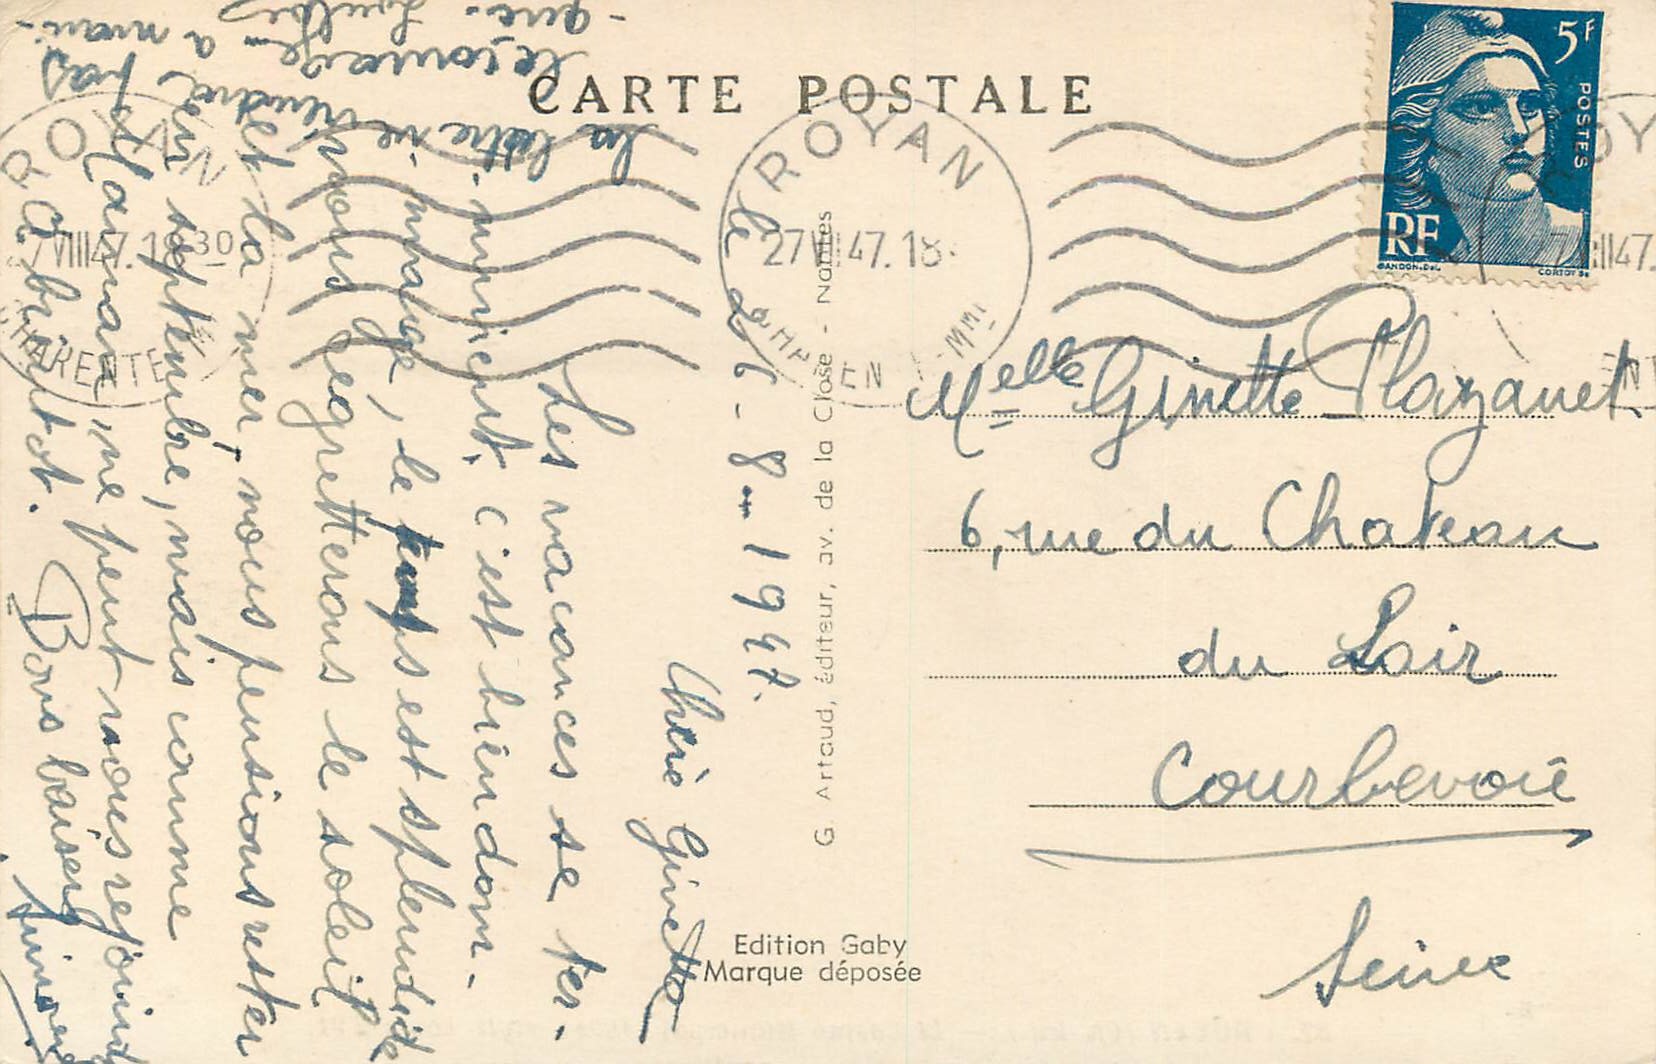 CARTE POSTALE
le 26-8-1947.
Chère Ginette
Les vacances se ter-
minent, c'est bien dom-
mage, le temps est splendide
nous regretterons le soleil
et la mer, nous pensions rester
en septembre, mais comme
Maman, ne peut nous rejoind
pas
Bons baisers
Simone
la lettre
le courage a man-
que.
Melle Ginette Plazanet
6, rue du Chateau
du Loir
Courbevoie
Seine
G. Artaud, éditeur, av. de la Close - Nantes
Edition Gaby
Marque déposée
ROYAN
27 VIII 47. 18
CHAREN MME
ROYAN
7 VIII 47. 18 30
CHARENTE
5F
POSTES
RF
GANDON.DEL
CORTOT SC